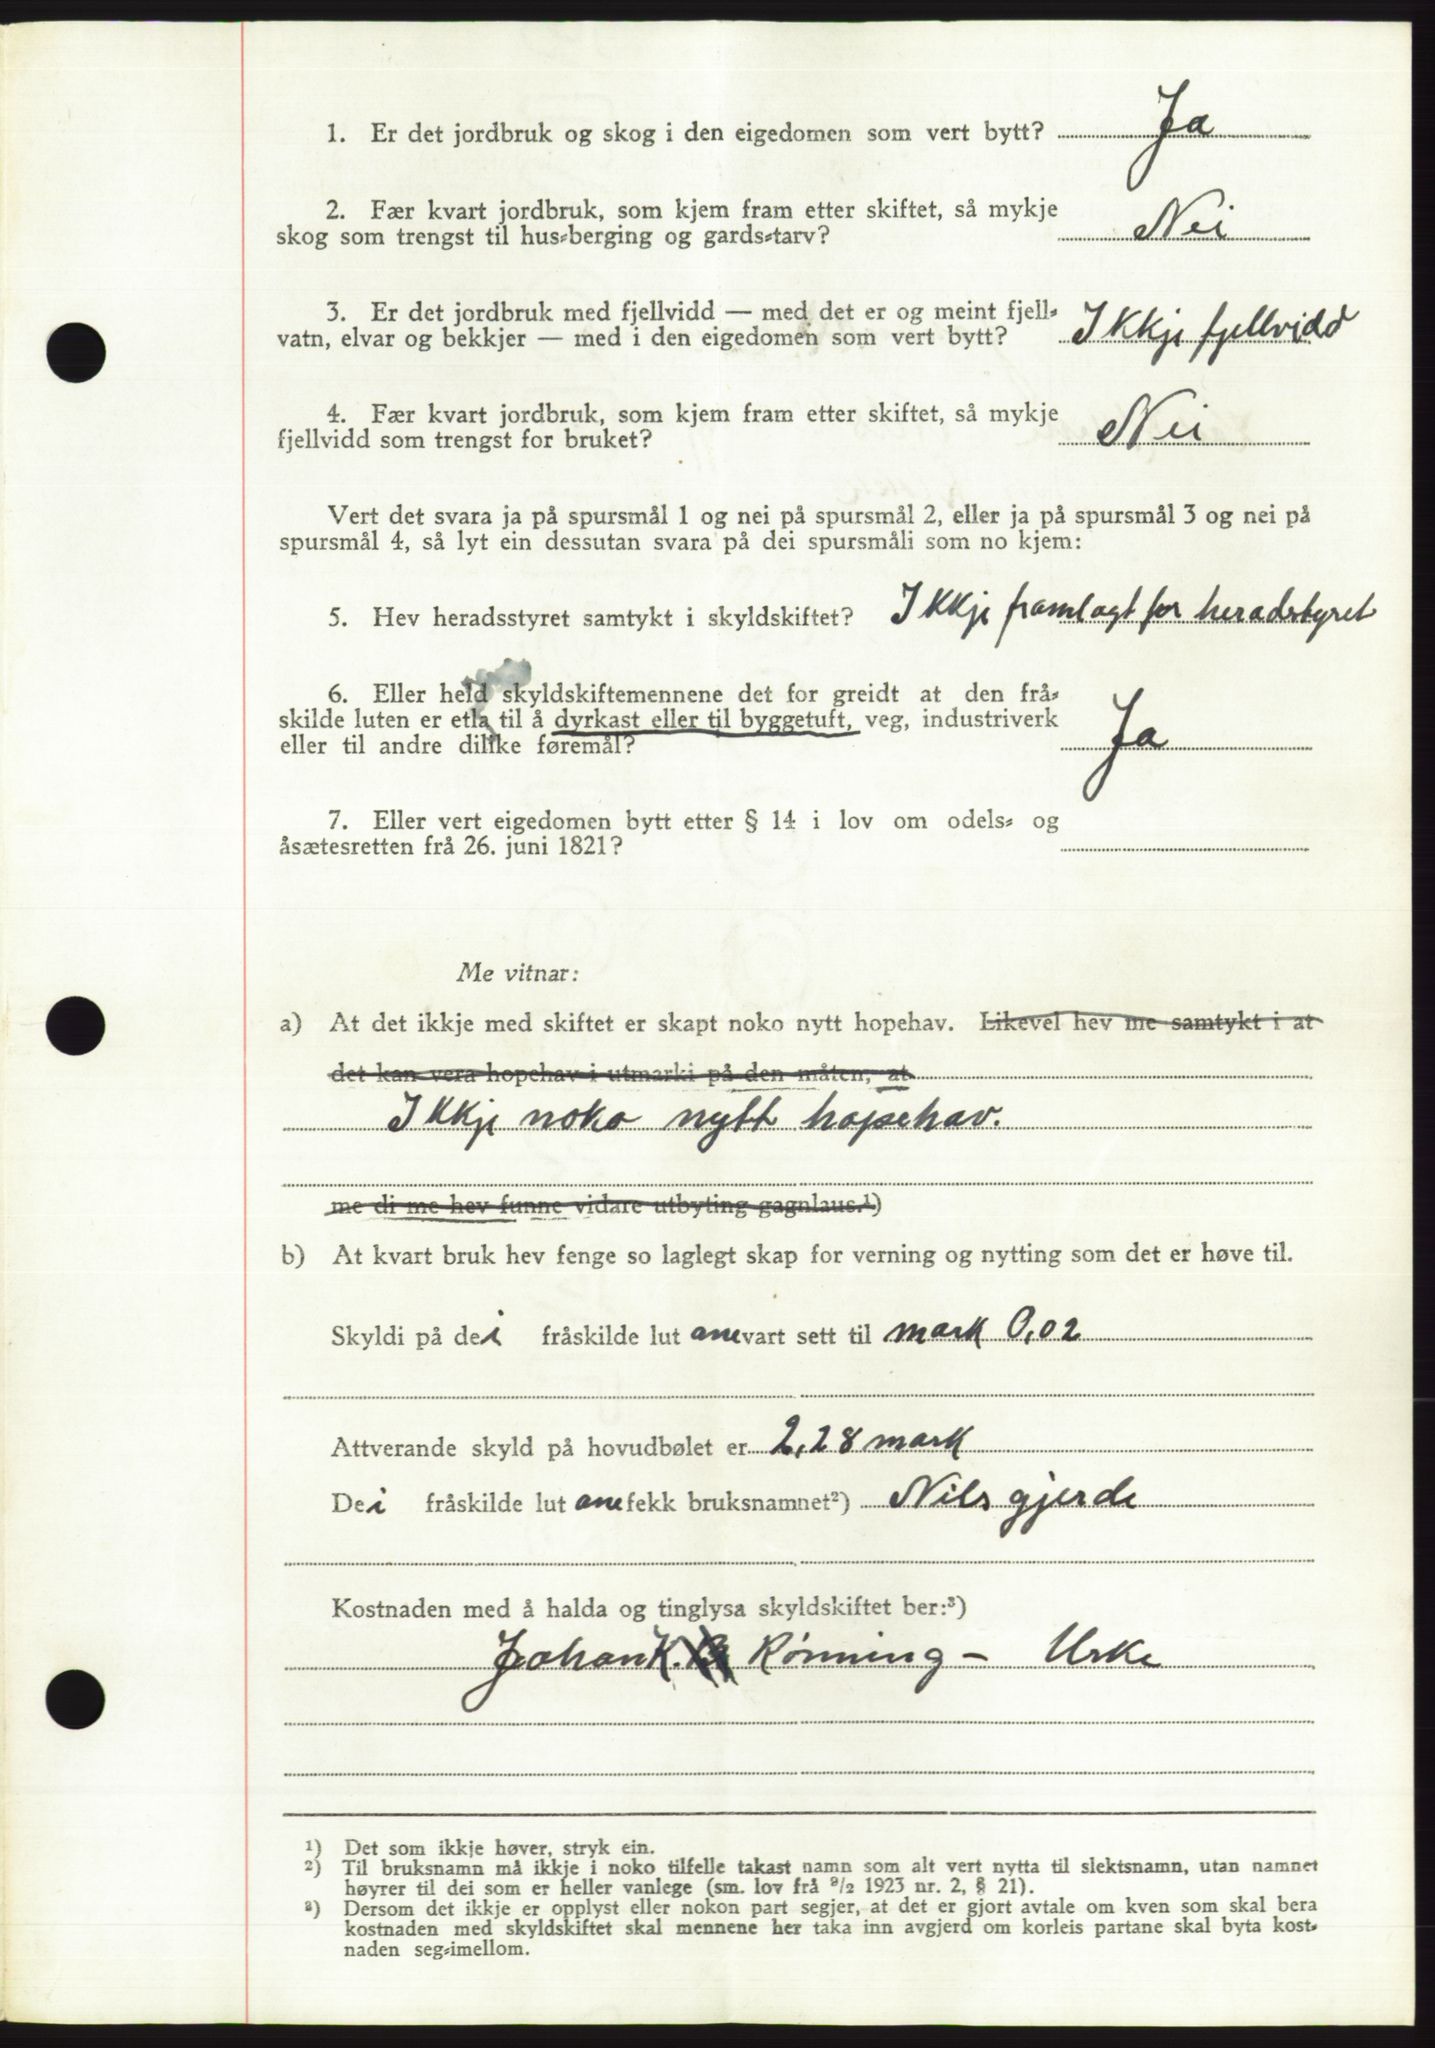 1. Er det jordbruk og skog i den eigedomen som vert bytt? Ja
2. Fær kvart jordbruk, som kjem fram etter skiftet, så mykje
skog som trengst til hus-berging og gards-tarv? Nei
3. Er det jordbruk med fjellvidd — med det er og meint fjell-
vatn, elvar og bekkjer — med i den eigedomen som vert bytt? Ikkje fjellvidd
4. Fær kvart jordbruk, som kjem fram etter skiftet, så mykje
fjellvidd som trengst for bruket? Nei
Vert det svara ja på spursmål 1 og nei på spursmål 2, eller ja på spursmål 3 og nei på
spursmål 4, så lyt ein dessutan svara på dei spursmåli som no kjem:
5. Hev heradsstyret samtykt i skyldskiftet? Ikkje framlagt for heradstyret
6. Eller held skyldskiftemennene det for greidt at den frå-
skilde luten er etla til å dyrkast eller til byggetuft, veg, industriverk
eller til andre dilike føremål? Ja
7. Eller vert eigedomen bytt etter § 14 i lov om odels- og
åsætesretten frå 26. juni 1821?
Me vitnar:
a) At det ikkje med skiftet er skapt noko nytt hopehav. Likevel hev me samtykt i at
det kan vera hopehav i utmarki på den måten, at
Ikkje noko nytt hopehav.
me di me hev funne vidare utbyting gagnlaus.¹)
b) At kvart bruk hev fenge so laglegt skap for verning og nytting som det er høve til.
Skyldi på dei fråskilde lutane vart sett til mark 0,02
Attverande skyld på hovudbølet er 2,28 mark
Dei fråskilde lutane fekk bruksnamnet²) Nilsgjerde
Kostnaden med å halda og tinglysa skyldskiftet ber:³)
Johan K. Rønning – Urke
¹) Det som ikkje høver, stryk ein.
²) Til bruksnamn må ikkje i noko tilfelle takast namn som alt vert nytta til slektsnamn, utan namnet
høyrer til dei som er heller vanlege (sm. lov frå ⁹/₂ 1923 nr. 2, § 21).
³) Dersom det ikkje er opplyst eller nokon part segjer, at det er gjort avtale om kven som skal bera
kostnaden med skyldskiftet skal mennene her taka inn avgjerd om korleis partane skal byta kost-
naden seg-imellom.